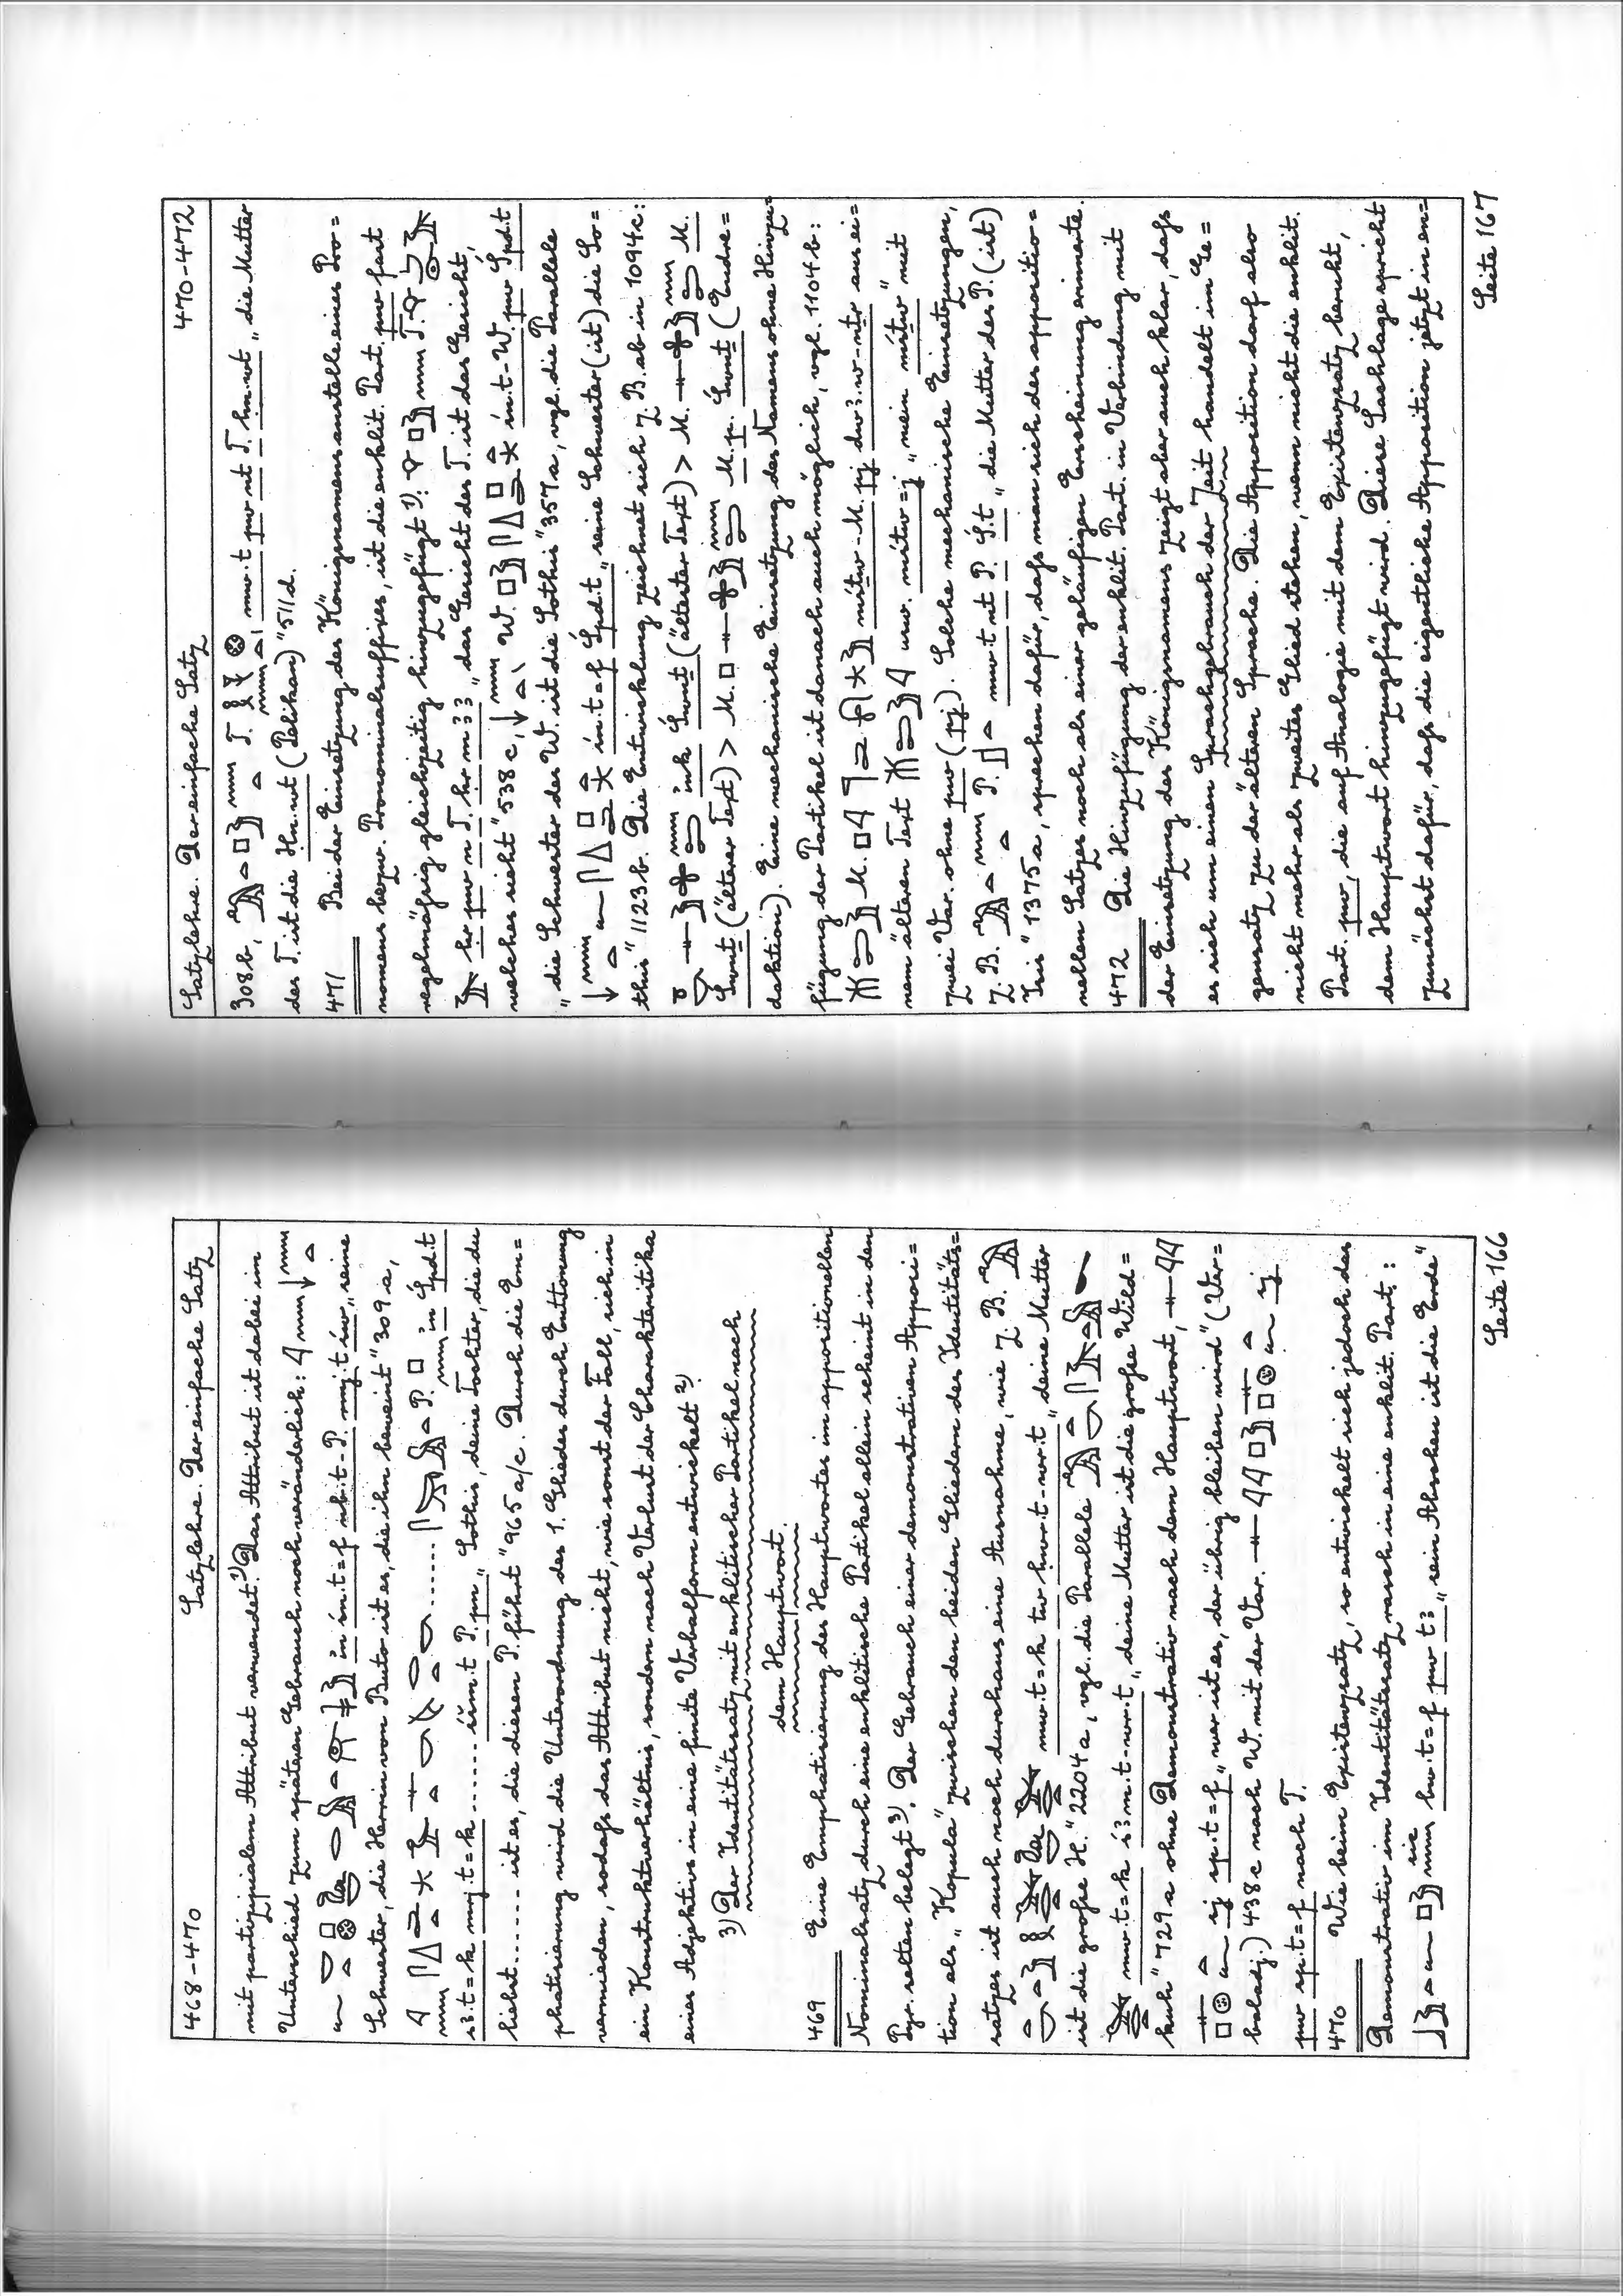 468-470 Satzlehre. Der einfache Satz
mit partizipialem Attribut verwendet.²⁾ Das Attribut ist dabei im
Unterschied zum späteren Gebrauch noch veränderlich:
in śn.t=f nb.t-P. mj.t św „seine
Schwester, die Herrin von Buto ist es, die ihn beweint" 309a,
in Śpd.t
sꜣ.t=k mrj.t=k ........ śšm.t P. pn „Sothis, deine Tochter, die du
liebst ........ ist es, die diesen P. führt" 965a/c. Durch die Em=
phatisierung wird die Unterordnung des 1. Gliedes durch Enttonung
vermieden, sodaß das Attribut nicht, wie sonst der Fall, sich in
ein Konstruktverhältnis, sondern nach Verlust der Charakteristika
eines Adjektivs in eine finite Verbalform entwickelt ²⁾.
3) Der Identitätssatz mit enklitischer Partikel nach
dem Hauptwort.
469 Eine Emphatisierung des Hauptwortes im appositionellen
Nominalsatz durch eine enklitische Partikel allein scheint in den
Pyr. selten belegt ³⁾. Der Gebrauch einer demonstrativen Apposi=
tion als „Kopula" zwischen den beiden Gliedern des Identitäts=
satzes ist auch noch durchaus eine Ausnahme, wie z. B.
mw.t=k tw ḥwr.t-wr.t „deine Mutter
ist die große H." 2204a, vgl. die Parallele
mw.t=k śmꜣ.t-wr.t „deine Mutter ist die große Wild=
kuh" 729a ohne Demonstrativ nach dem Hauptwort,
zj sp.t=f „wer ist es, der übrig bleiben wird" (Ver=
baladj.) 438c nach W. mit der Var. zj
pw sp.t=f nach T.
470 Wie beim Existenzsatz, so entwickelt sich jedoch das
Demonstrativ im Identitätssatz rasch in eine enklit. Part.:
bw.t=f pw tꜣ „sein Abscheu ist die Erde"
Seite 166
Satzlehre. Der einfache Satz 470-472
308b, mw.t pw nt T. ḥn.wt „die Mutter
des T. ist die Ḥn.wt (Pelikan)" 511d.
471 Bei der Einsetzung des Königsnamens anstelle eines Pro=
nomens bezw. Pronominalsuffixes, ist die enklit. Part. pw fast
regelmäßig gleichzeitig hinzugefügt ³⁾:
ḥr pw n T. ḥr m ꜣꜣ „das Gesicht des T. ist das Gesicht,
welches sieht" 538c, śn.t-W. pw Śpd.t
„die Schwester des W. ist die Sothis" 357a, vgl. die Parallele
śn.t=f Śpd.t „seine Schwester (ist) die So=
this" 1123b. Die Entwicklung zeichnet sich z. B. ab in 1094c:
ink Śwnṯ (ältester Text) > M. M.
Śwnṯ (älterer Text) > M. M. p. Śwnṯ (Endre=
daktion). Eine mechanische Einsetzung des Namens ohne Hinzu=
fügung der Partikel ist danach auch möglich, vgl. 1104b:
mśṯw-M. pj dwꜣ.w-nṯr aus ei=
nem älteren Text usw. mśṯw=j „mein mśṯw" mit
zwei Var. ohne pw (pj). Solche mechanische Einsetzungen,
z. B. mw.t nt P. Ꜣś.t „die Mutter des P. (ist)
Isis" 1375a, sprechen dafür, daß man sich des appositio=
nellen Satzes noch als einer geläufigen Erscheinung erinnerte.
472 Die Hinzufügung der enklit. Part. in Verbindung mit
der Einsetzung des Königsnamens zeigt aber auch klar, daß
es sich um einen Sprachgebrauch der Zeit handelt im Ge=
gensatz zu der älteren Sprache. Die Apposition darf also
nicht mehr als zweites Glied stehen, wenn nicht die enklit.
Part. pw, die auf Analogie mit dem Existenzsatz beruht,
dem Hauptwort hinzugefügt wird. Diese Sachlage spricht
zunächst dafür, daß die eigentliche Apposition jetzt in en=
Seite 167